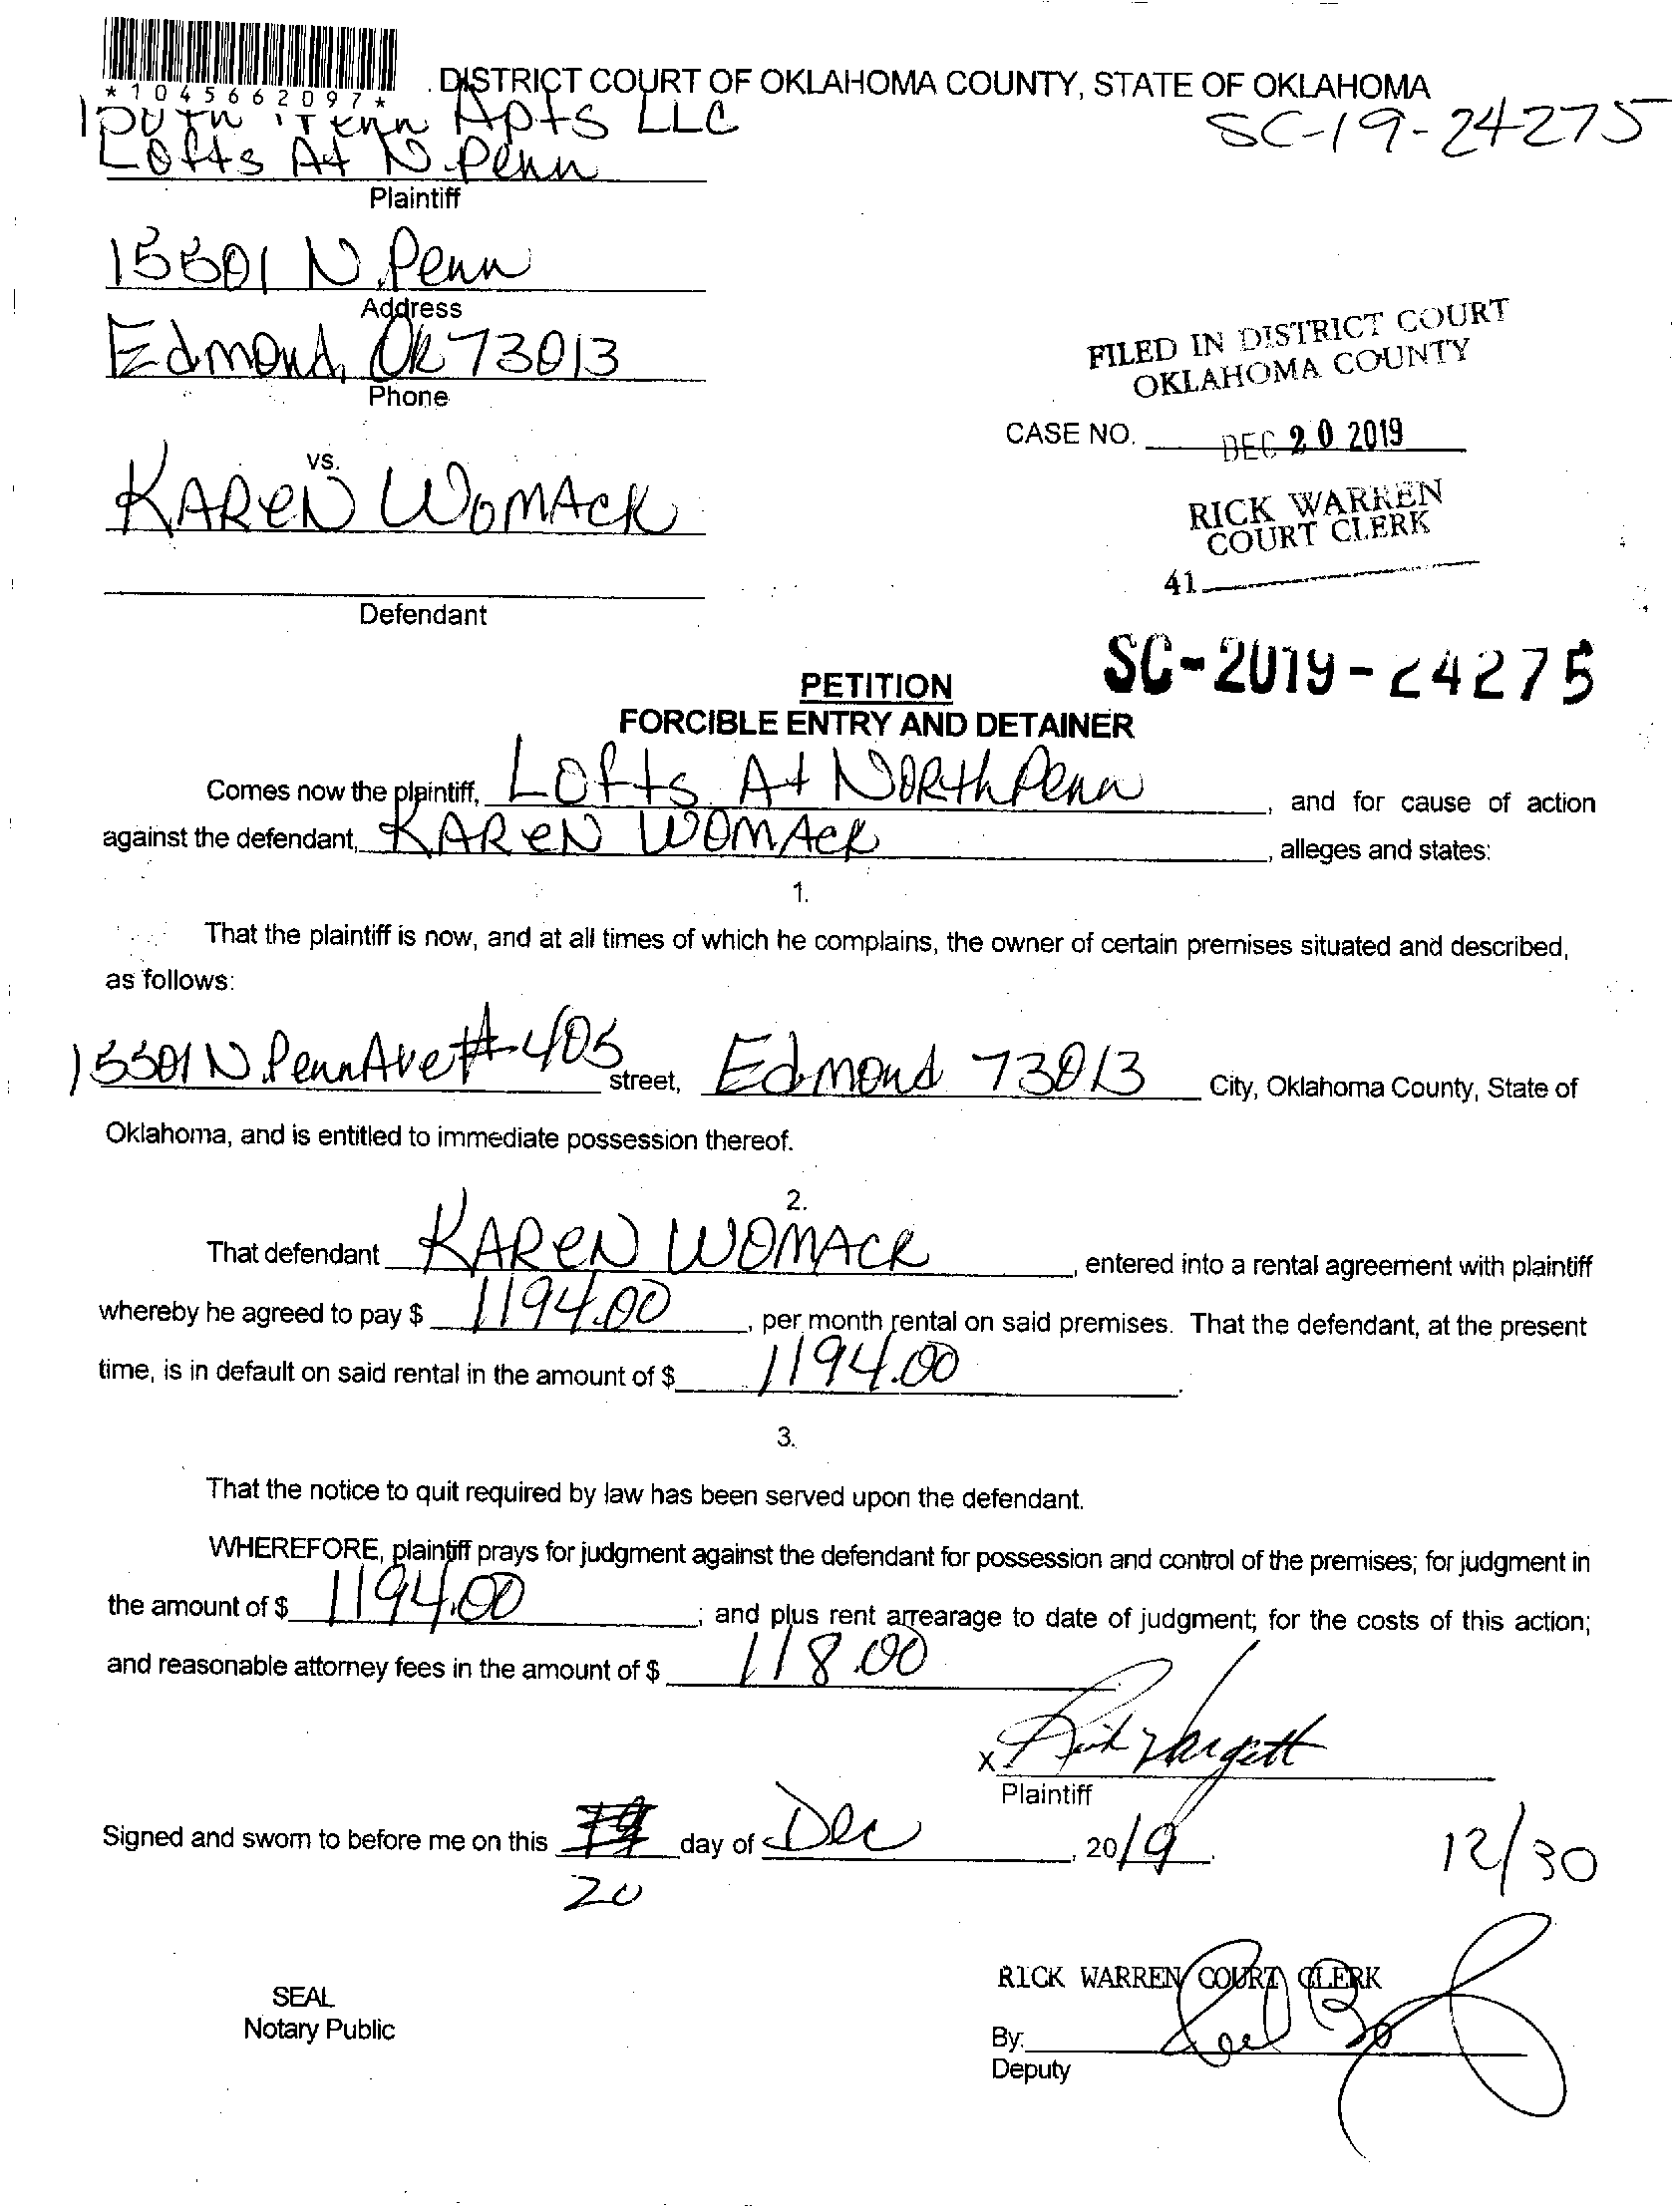 *1045662097*
DISTRICT COURT OF OKLAHOMA COUNTY, STATE OF OKLAHOMA
Apts LLC
SC-19-24275
Lofts At N. Penn
Plaintiff
15501 N. Penn
Address
Edmond, OK 73013
Phone
FILED IN DISTRICT COURT
OKLAHOMA COUNTY
CASE NO. DEC 20 2019
vs.
KAREN WOMACK
RICK WARREN
COURT CLERK
41
Defendant
SC-2019-24275
PETITION
FORCIBLE ENTRY AND DETAINER
Comes now the plaintiff, Lofts At North Penn, and for cause of action
against the defendant, KAREN WOMACK, alleges and states:
1.
That the plaintiff is now, and at all times of which he complains, the owner of certain premises situated and described,
as follows:
15501 N. Penn Ave #405 street, Edmond 73013 City, Oklahoma County, State of
Oklahoma, and is entitled to immediate possession thereof.
2.
That defendant KAREN WOMACK, entered into a rental agreement with plaintiff
whereby he agreed to pay $ 1194.00, per month rental on said premises. That the defendant, at the present
time, is in default on said rental in the amount of $ 1194.00.
3.
That the notice to quit required by law has been served upon the defendant.
WHEREFORE, plaintiff prays for judgment against the defendant for possession and control of the premises; for judgment in
the amount of $ 1194.00; and plus rent arrearage to date of judgment; for the costs of this action;
and reasonable attorney fees in the amount of $ 118.00
X
Plaintiff
Signed and sworn to before me on this day of Dec, 2019.
12/30
20
RICK WARREN COURT CLERK
SEAL
Notary Public
By:
Deputy